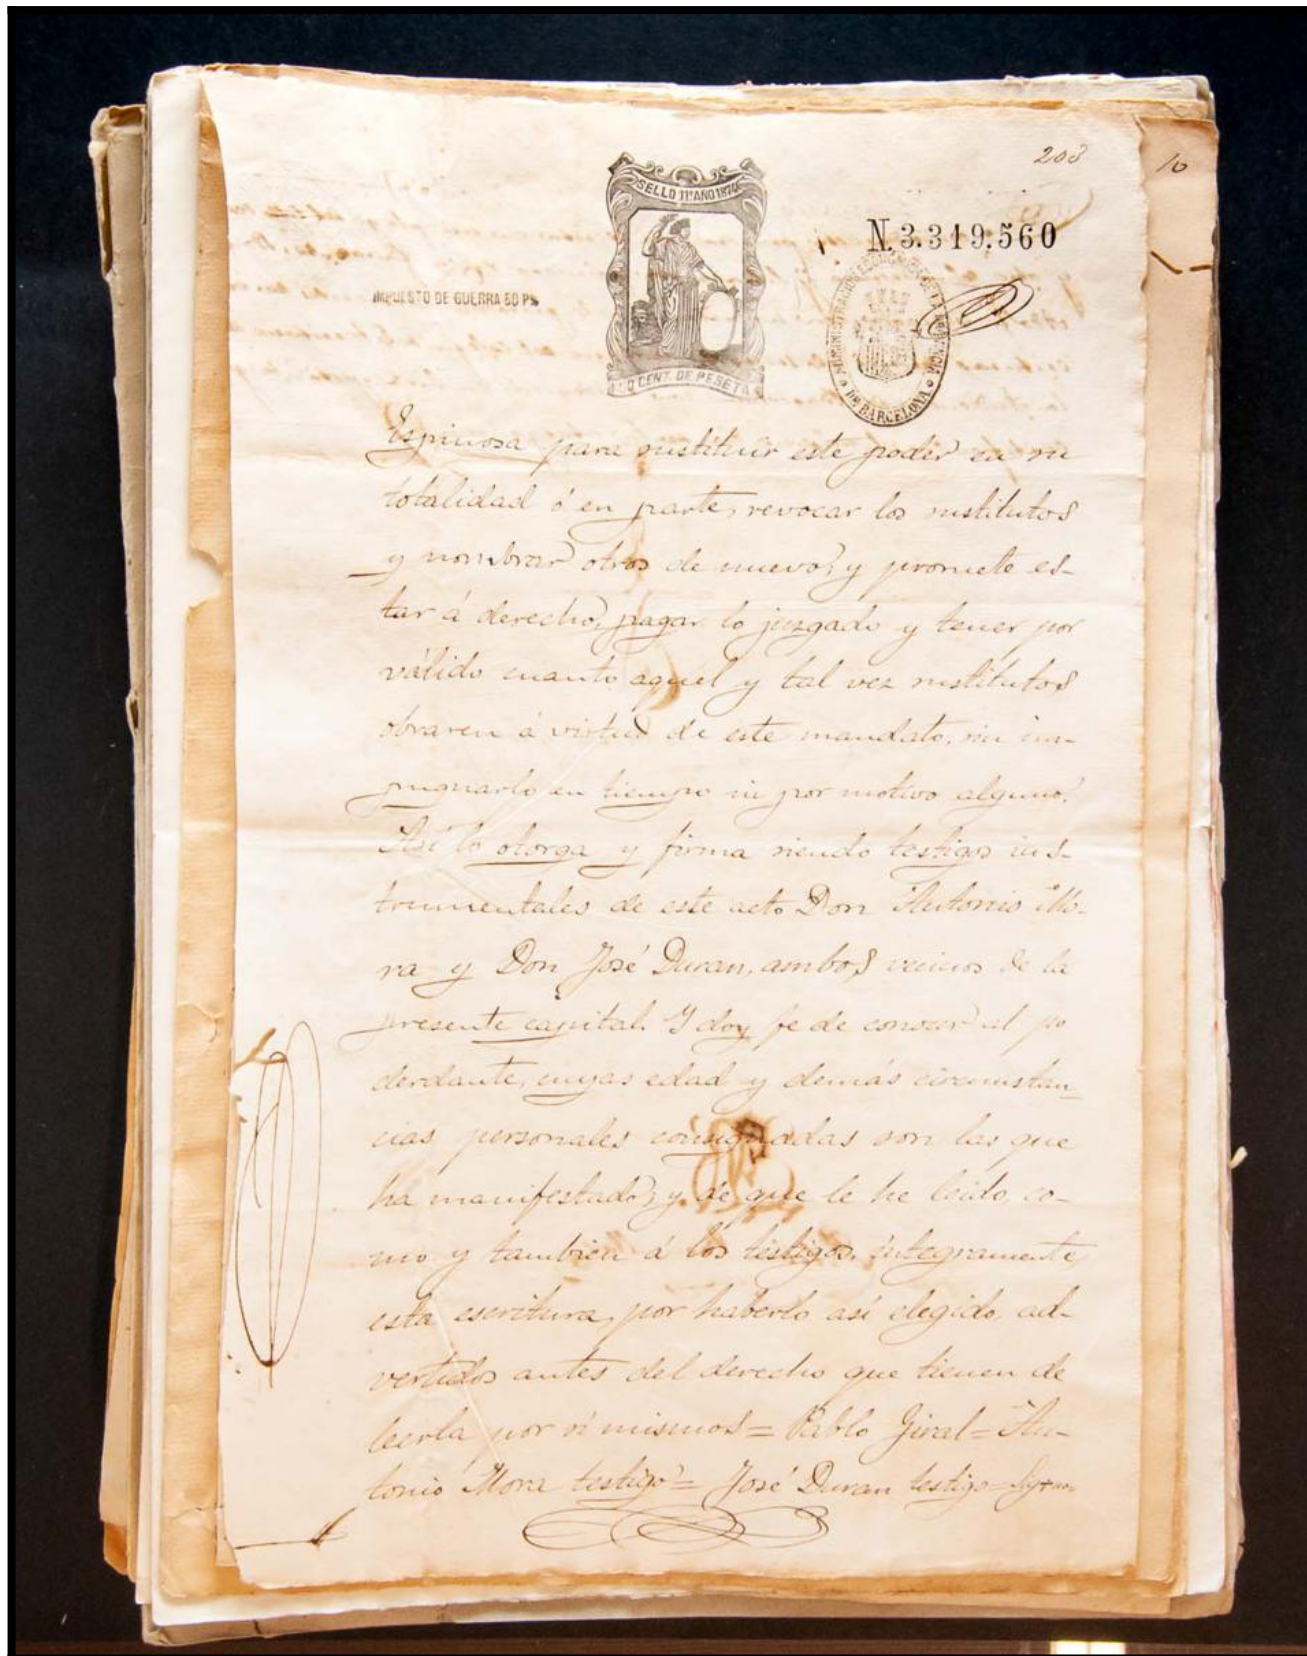 203
10
SELLO 11º AÑO 1874
N.3.319.560
IMPUESTO DE GUERRA 50 Ps
ADMINISTRACION ECONOMICA DE LA PROVINCIA
DE BARCELONA
50 CENT. DE PESETA
Espinosa para sustituir este poder en su
totalidad ó en parte, revocar los sustitutos
y nombrar otros de nuevo; y promete es-
tar á derecho, pagar lo juzgado y tener por
válido cuanto aquel y tal vez sustitutos
obraren á virtud de este mandato, sin im-
pugnarlo en tiempo ni por motivo alguno.
Así lo otorga y firma siendo testigos ins-
trumentales de este acto Don Antonio Mo-
ra y Don José Duran, ambos vecinos de la
presente capital. Y doy fe de conocer al po
derdante, cuyas edad y demás circunstan-
cias personales consignadas son las que
ha manifestado; y de que le he leido, co-
mo y tambien á los testigos, íntegramente
esta escritura, por haberlo así elegido, ad-
vertidos antes del derecho que tienen de
leerla por sí mismos = Pablo Giral = An-
tonio Mora testigo = José Duran testigo =